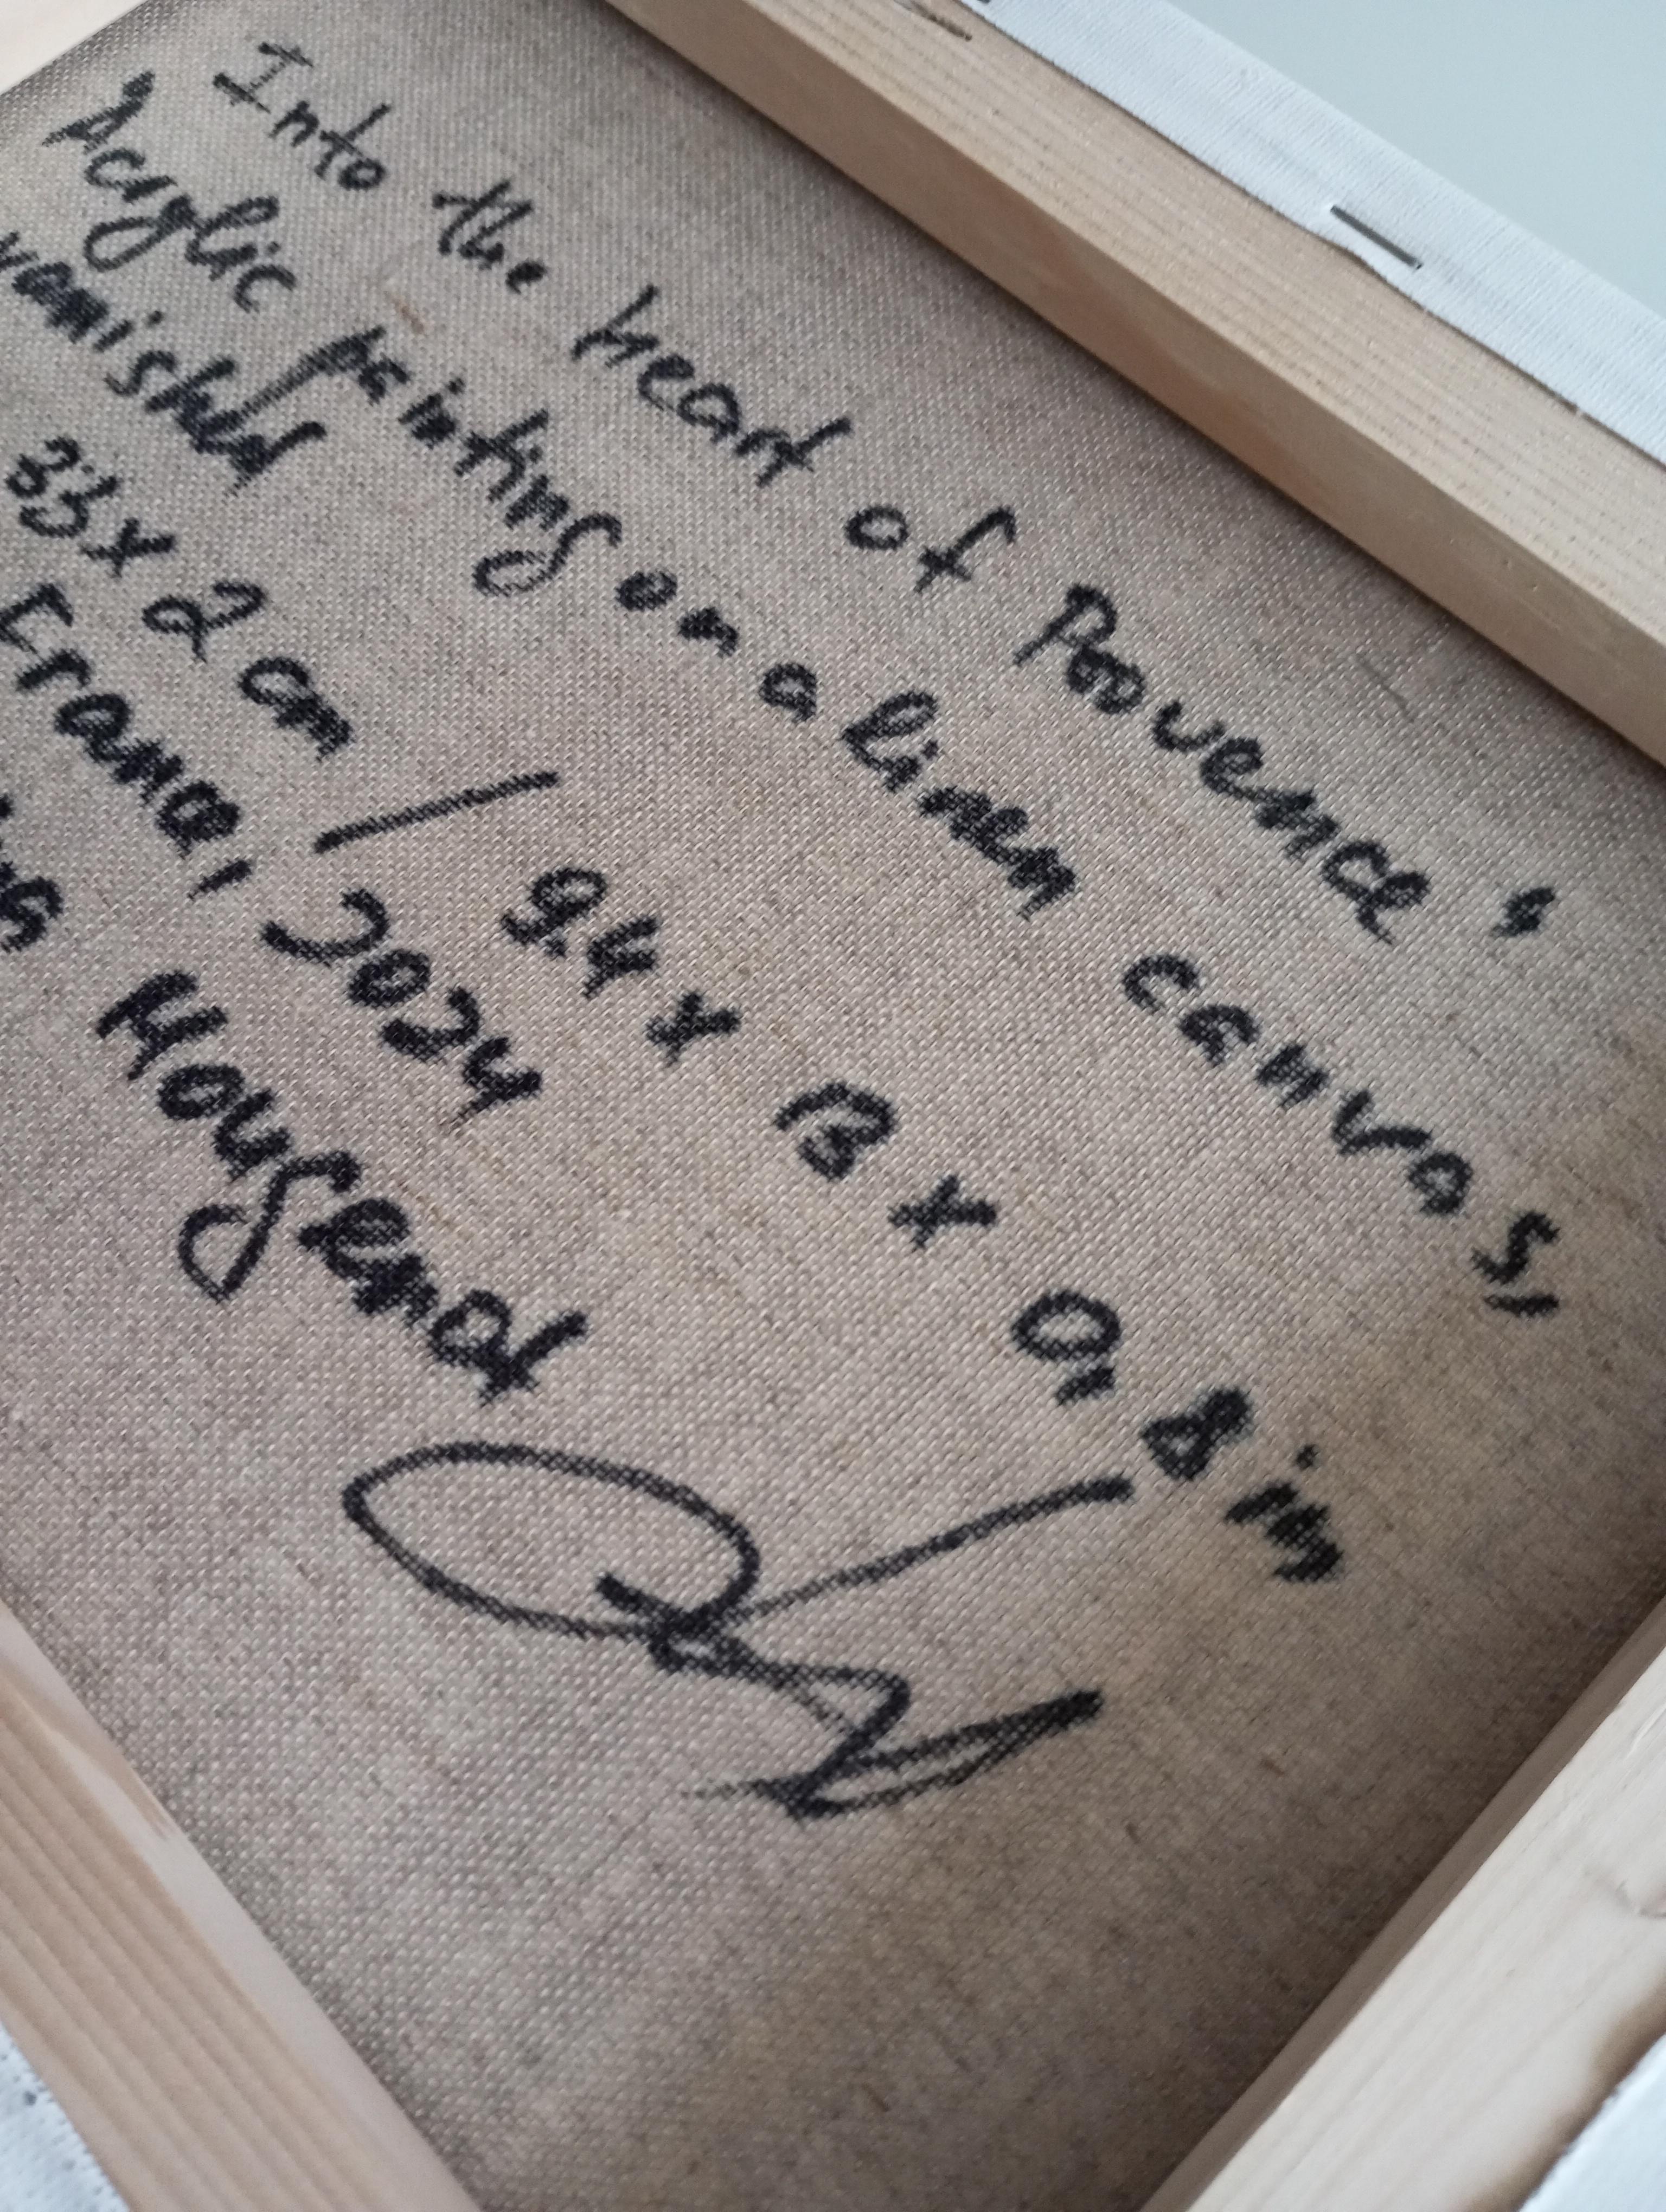 Into the heart of Provence"
Acrylic painting on a linen canvas,
varnished
33 x 2 cm / 9.4 x 13 x 0,8 in
France, 2024
Hougenot